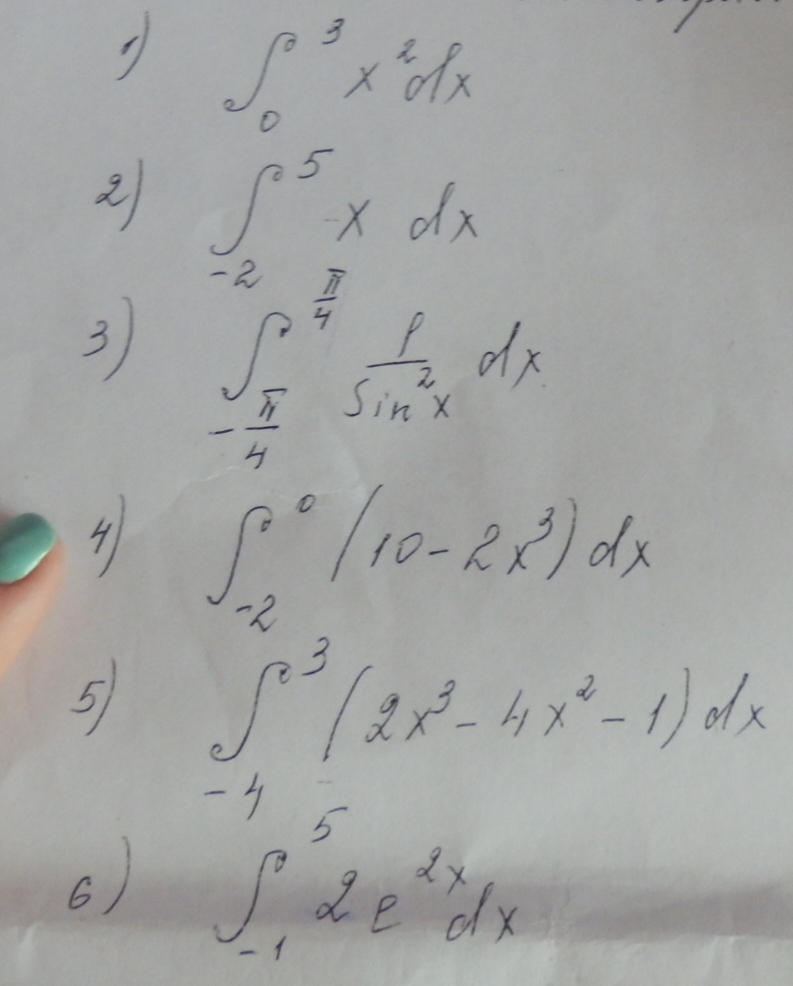 1) ∫₀³ x² dx
2) ∫₋₂⁵ x dx
3) ∫_{-π/4}^{π/4} 1/sin²x dx
4) ∫₋₂⁰ (10 - 2x³) dx
5) ∫₋₄³ (2x³ - 4x² - 1) dx
6) ∫₋₁⁵ 2e^{2x} dx